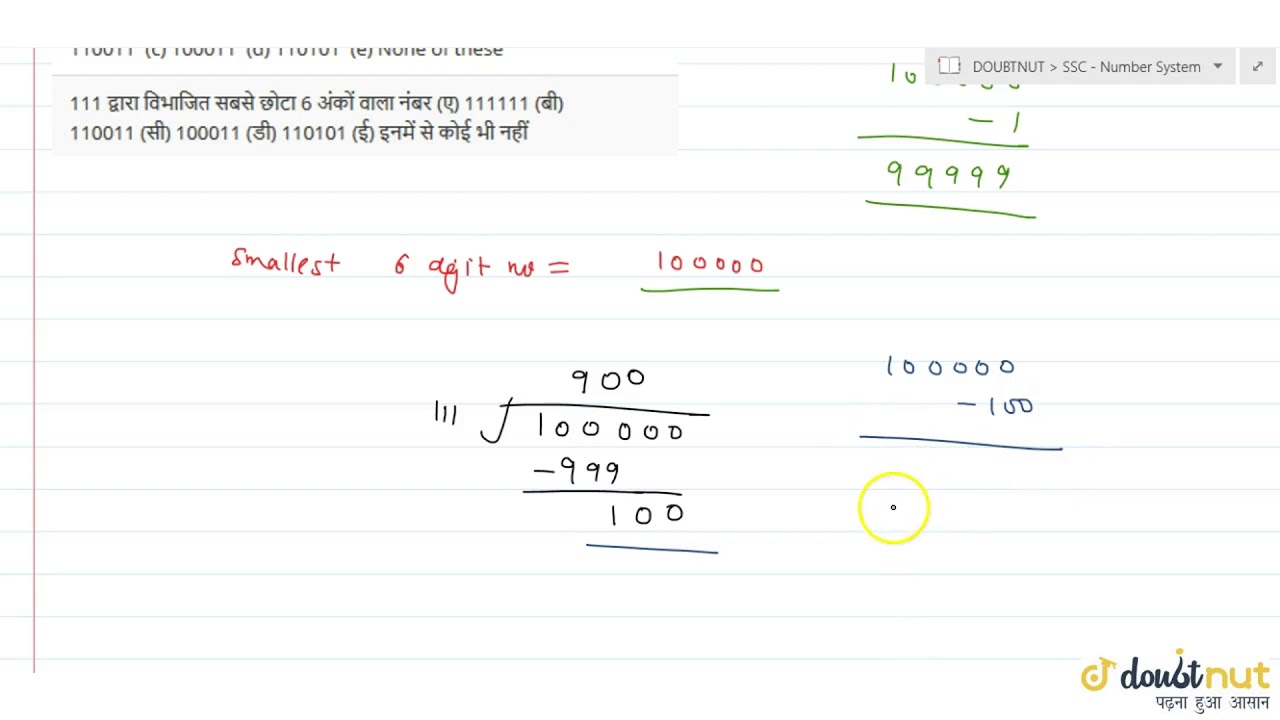 110011 (c) 100011 (d) 110101 (e) None of these
111 द्वारा विभाजित सबसे छोटा 6 अंकों वाला नंबर (ए) 111111 (बी)
110011 (सी) 100011 (डी) 110101 (ई) इनमें से कोई भी नहीं
DOUBTNUT > SSC - Number System
- 1
99999
Smallest 6 digit no = 100000
900
111 100000
- 999
100
100000
- 100
doubtnut
पढ़ना हुआ आसान